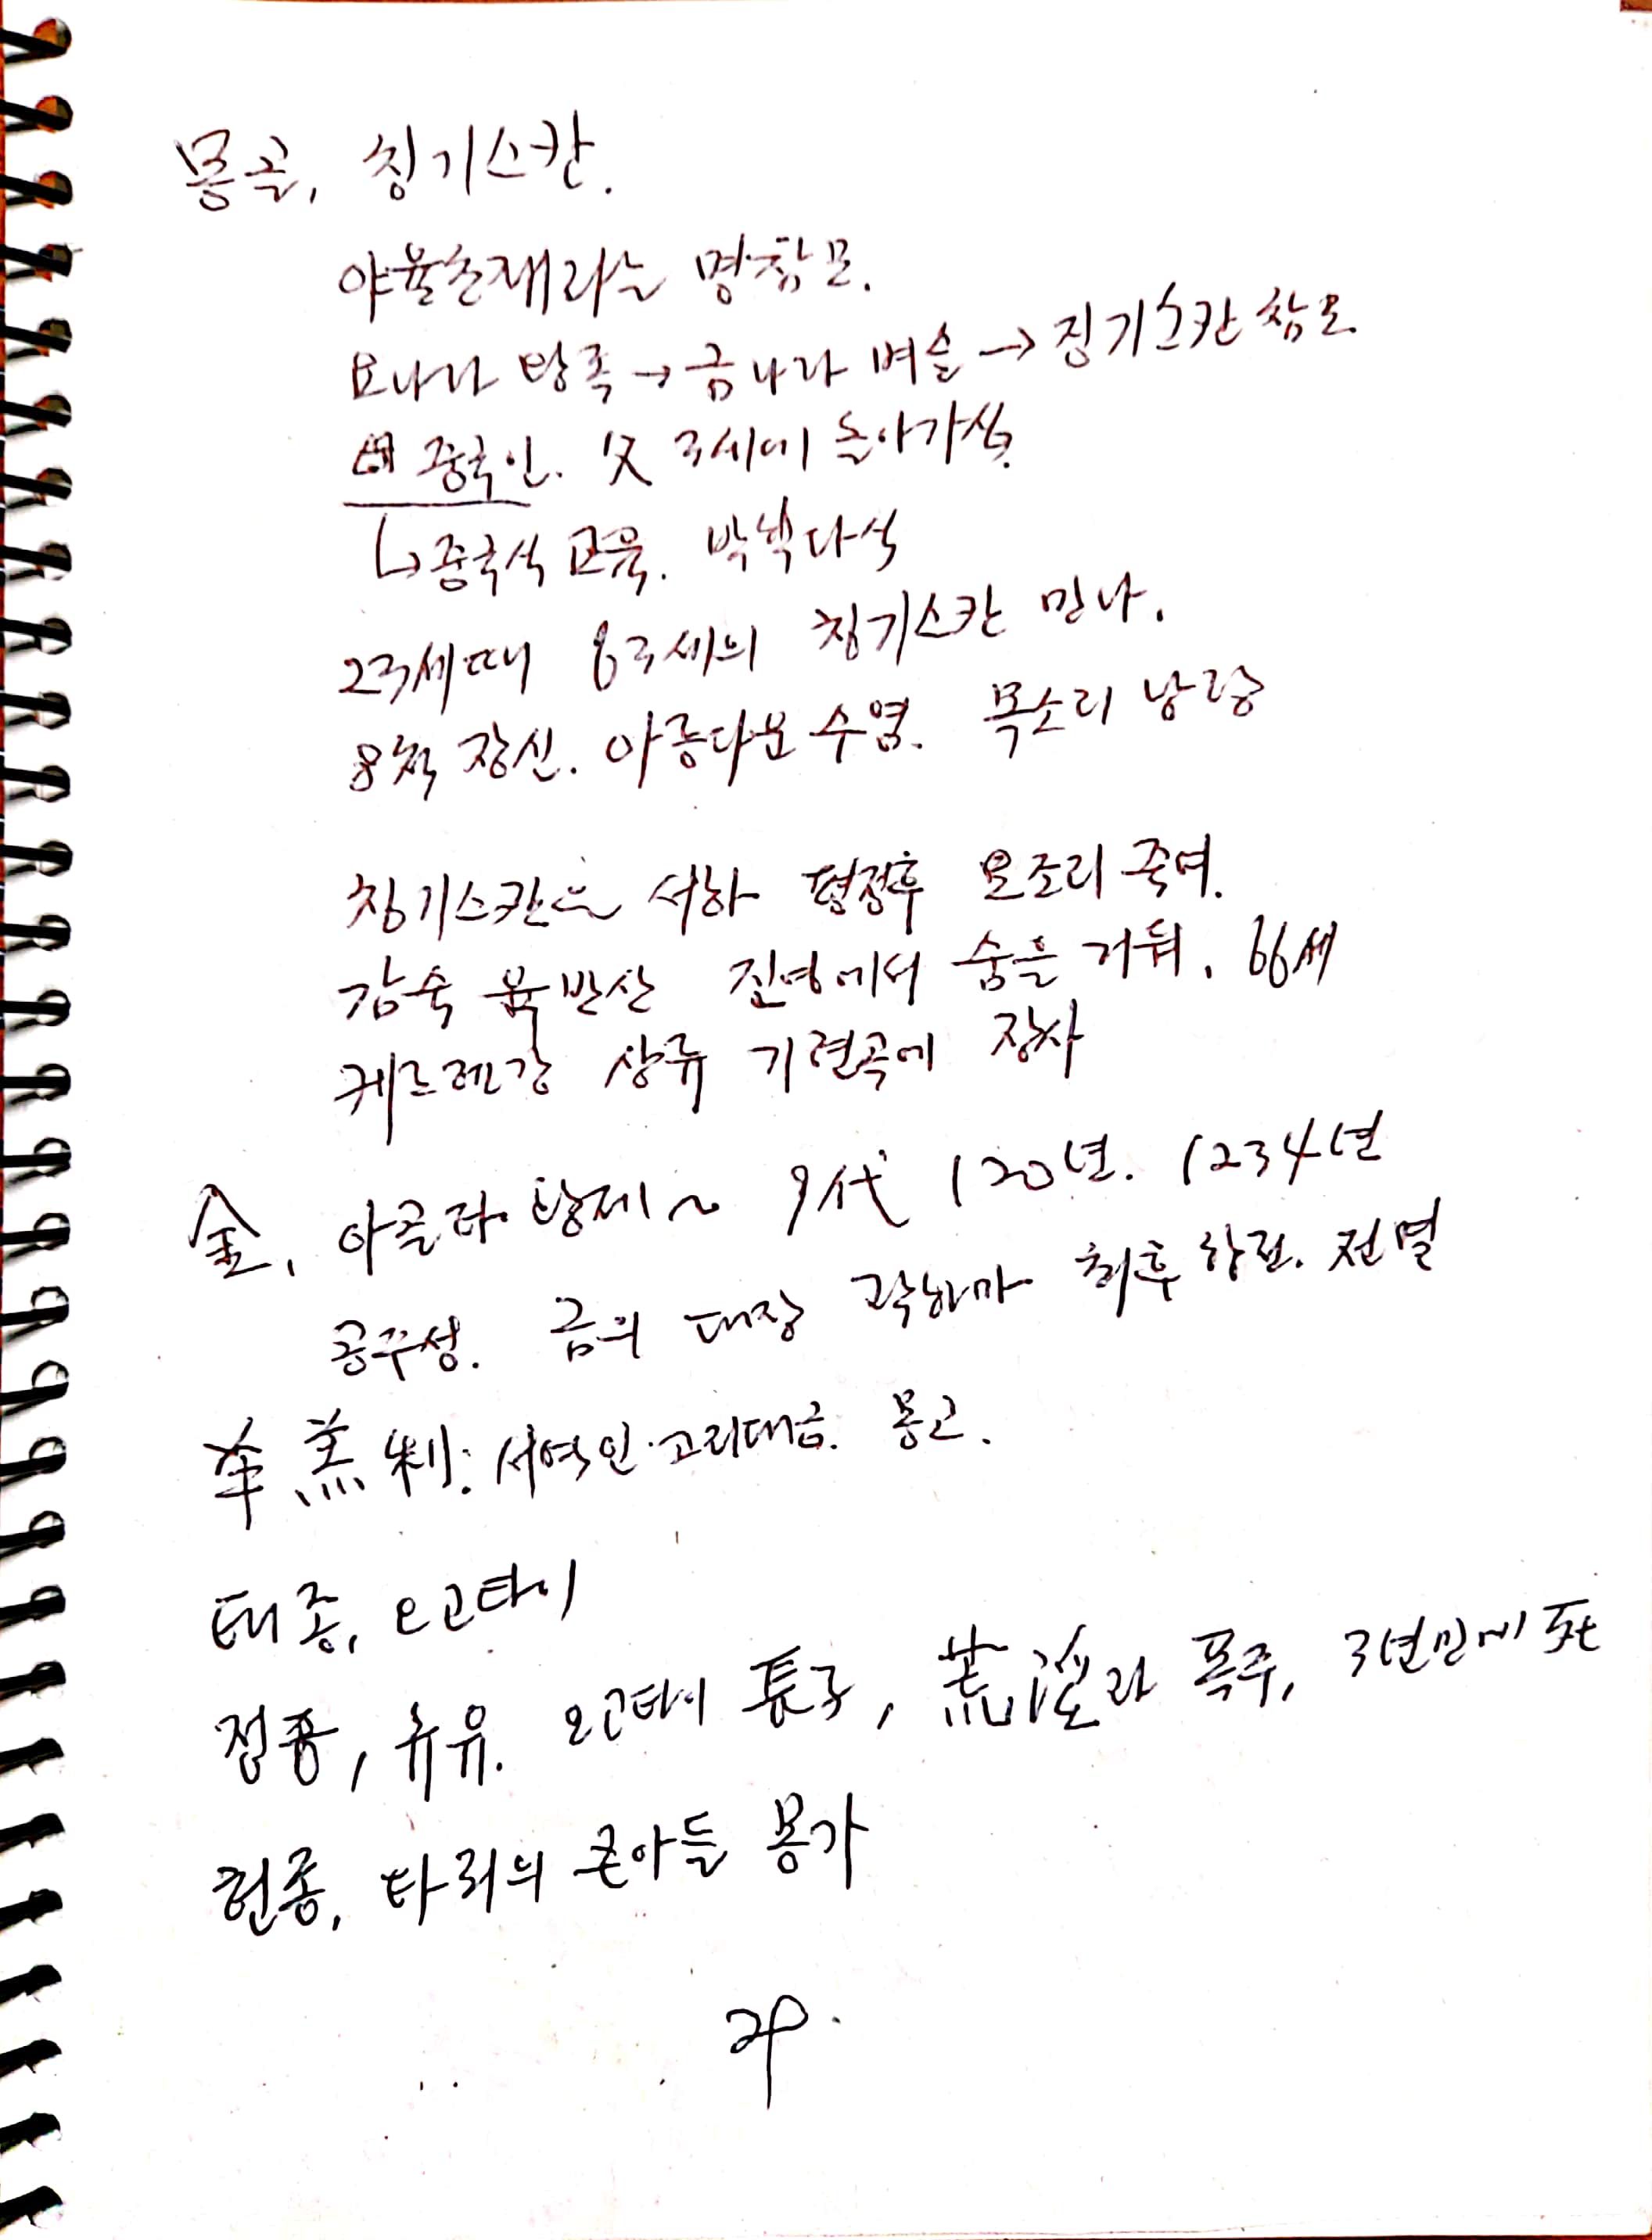 몽골, 칭기스칸.
야율초재라는 명참모.
요나라 왕족→금나라 벼슬→칭기스칸 참모.
母 중국인. 父 3세에 돌아가심.
↳중국식 교육. 박학다식
23세때 63세의 칭기스칸 만나.
8척 장신. 아름다운 수염. 목소리 낭랑
칭기스칸은 서하 평정후 모조리 죽여.
감숙 육반산 진영에서 숨을 거둬. 66세
케르렌강 상류 기련곡에 장사
金, 아골타 황제~ 9代 120년. 1234년
공주성. 금의 대장 곽하마 최후 항전. 전멸
羊羔利: 서역인·고리대금. 몽고.
태종, 오고타이
정종, 큐유. 오고타이 長子, 荒淫과 폭주, 3년만에 死
헌종, 타뢰의 큰아들 몽가
2p.